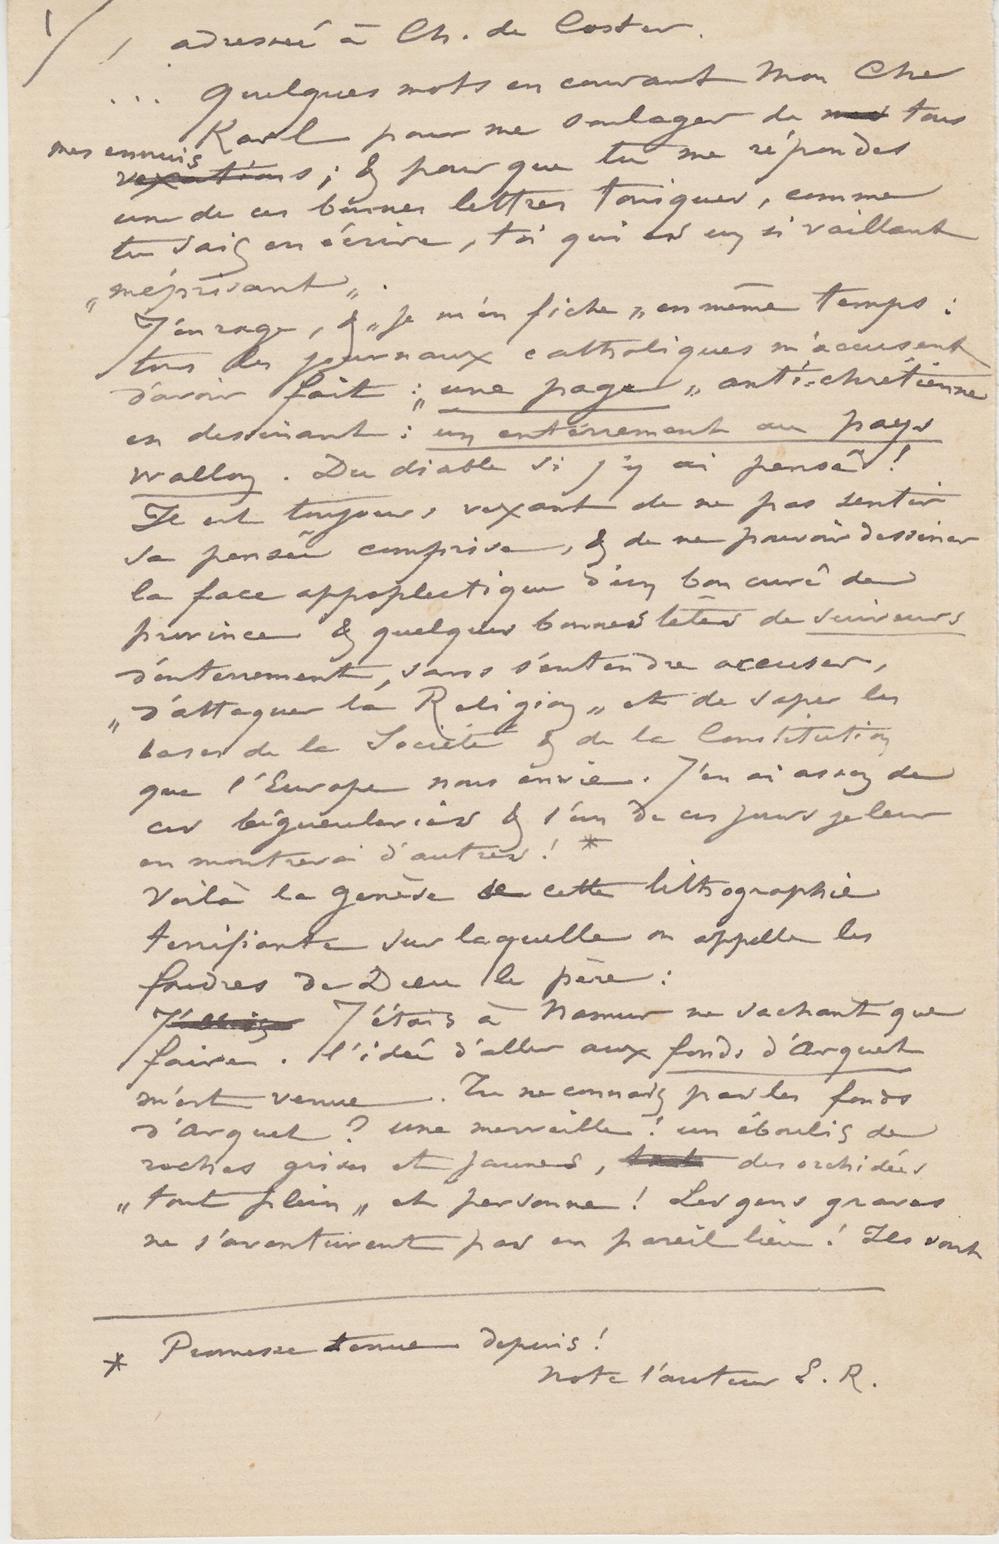 1/
! adressée à Ch. de Coster.
... Quelques mots en courant Mon Cher
Karl pour me soulager de mes tous
mes ennuis
vexations ; & pour que tu me répondes
une de ces bonnes lettres toniques, comme
tu sais en écrire, toi qui es un si vaillant
„méprisant„.
J'enrage, & „je m'en fiche„ en même temps :
tous les journaux catholiques m'accusent
d'avoir fait : „une page„ anti-chrétienne
en dessinant : un enterrement au pays
wallon. Du diable si j'y ai pensé !
Il est toujours vexant de ne pas sentir
sa pensée comprise, & de ne pouvoir dessiner
la face appoplectique d'un bon curé de
province & quelques bonnes têtes de suiveurs
d'enterrement, sans s'entendre accuser,
„d'attaquer la Religion„ et de saper les
bases de la Société & de la Constitution
que l'Europe nous envie. J'en ai assez de
ces bégueuleries & l'un de ces jours je leur
en montrerai d'autres ! *
Voilà la genèse de cette lithographie
terrifiante sur laquelle on appelle les
foudres de Dieu le père :
J'étais à Namur ne sachant que
faire. l'idée d'aller aux fonds d'Arquet
m'est venue. Tu ne connais pas les fonds
d'Arquet ? une merveille ! un éboulis de
roches grises et jaunes, des orchidées
„tout plein„ et personne ! Les gens graves
ne s'aventurent pas en pareil lieu ! Ils vont
* Promesse tenue depuis !
note l'auteur F. R.